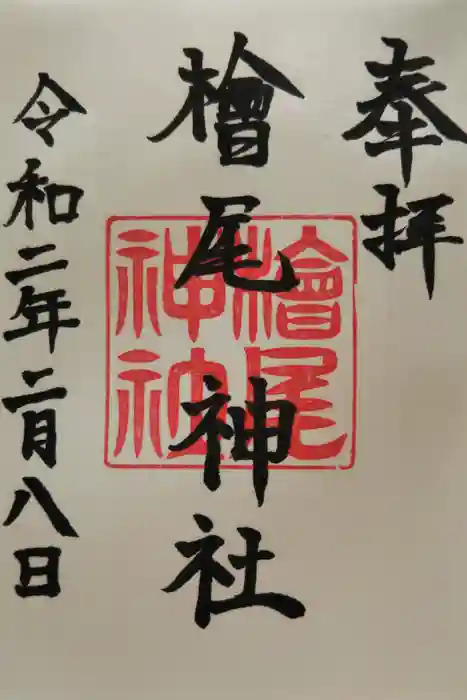 奉拝
檜尾神社
檜尾
神社
令和二年二月八日